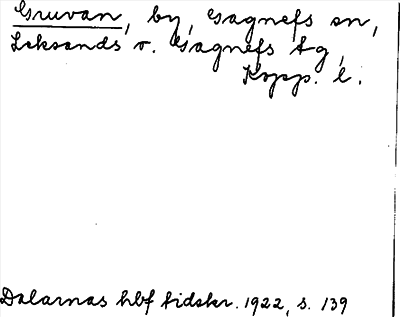 Gruvan, by, Gagnefs sn,
Leksands o. Gagnefs tg,
Kopp. l.
Dalarnas hbf tidskr. 1922, s. 139